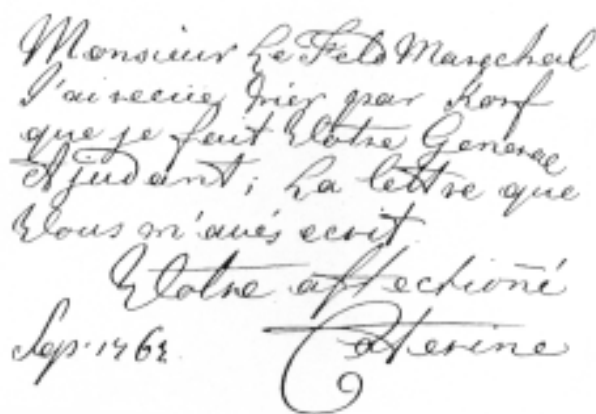 Monsieur Le Feld Marechal
J'ai recüe hier par Korf
que je fait Votre General
Adjudant; La lettre que
Vous m'avés ecrit
Votre affectioñé
Caterine
Sep. 1762.